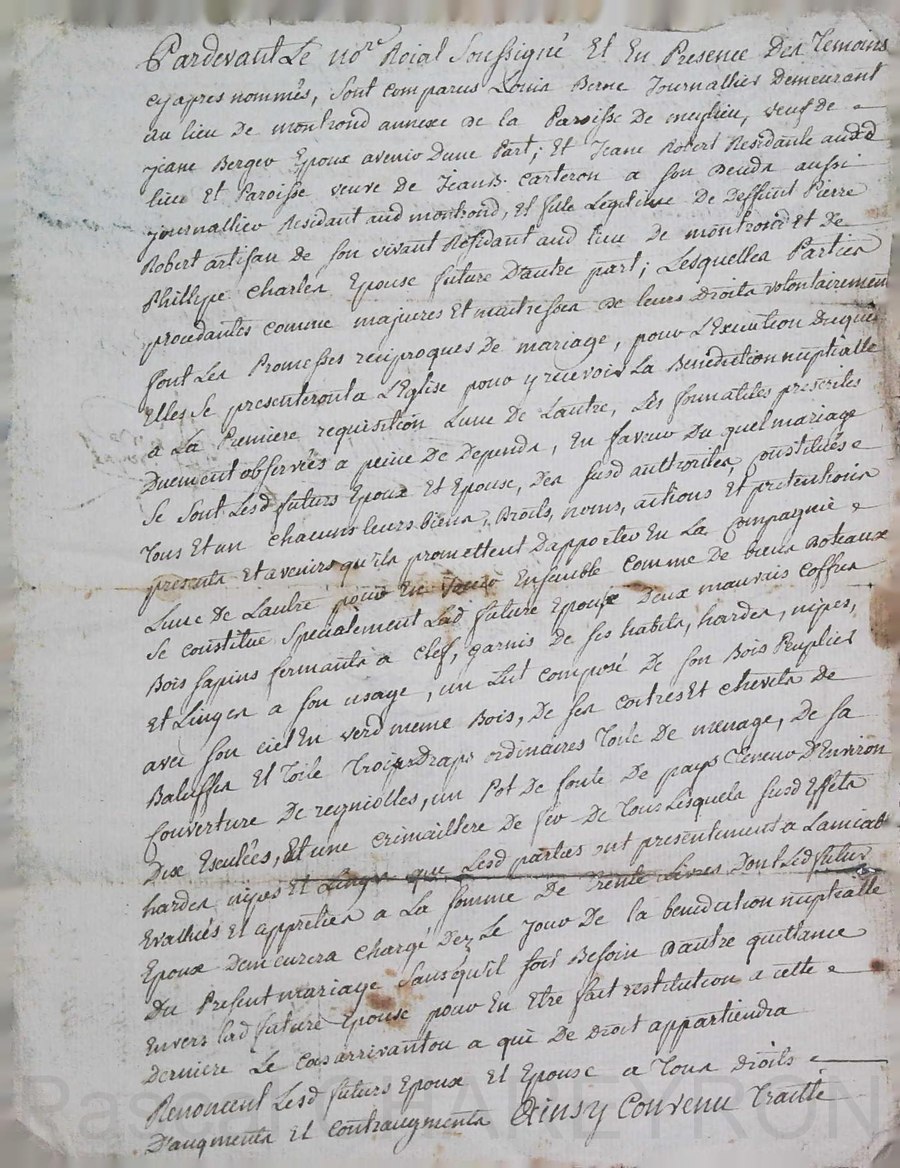 Pardevant Le no.re Roial Soussigné Et En Presence Des Temoins
cy apres nommés, sont comparus Louis Berne Journallier Demeurant
au lieu de montrond annexe de la Paroisse De meylieu, veuf de
jeane Berger Epoux avenir Dune Part; Et Jeane Robert Residante aud
lieu Et Paroisse veuve de Jean B. Carteron a son Deuda aussi
journallier Residant aud montrond, Et fille Legitime De Deffunt Pierre
Robert artisan de son vivant Residant aud lieu De montrond Et de
Philippe Charles Epouse future D'autre part; Lesquelles Parties
procedantes comme majeures Et maitresses de leurs Droits volontairement
font Les Promesses reciproques De mariage, pour L'Execution Duquel
Elles Se presenteront a L'Eglise pour y recevoir La Benediction nuptialle
a La Premiere requisition Lune De Lautre, Les formalités prescrites
Duement observées a peine De Depends, En faveur Du quel mariage
Se Sont Lesd futurs Epoux Et Epouse, Des susd authorités, constitués
Tous Et un chacuns leurs biens, Droits, noms, actions Et pretentions
presents Et avenirs qu'ils promettent D'apporter En La Compagnie
Lune De Lautre pour En Ensemble comme De biens Doteaux
Se constitue Specialement Lad future Epouse Deux mauvais Coffres
Bois sapins fermants a clef, garnis De ses habits, hardes, nipes,
Et Linges a son usage, un Lit composé De son Bois Peuplier
avec son ciel En verd meme Bois, De ses coitres Et chevets de
Baluffes Et Toile Trois Draps ordinaires Toile De menage, De sa
Couverture De reyniolles, un Pot De fonte De pays Teneur D'Environ
Dix Eculées, Et une crimaillere De fer De Tous Lesquels susd Effets
hardes nipes Et Linges que Lesd parties ont presentement a Lamiab
Evalués Et appretiés a La somme De Trente Livres Dont Led futur
Epoux Demeurera chargé Dez Le jour De la benediction nuptialle
Du Present mariage Sans qu'il soit Besoin D'autre quittance
Envers lad future Epouse pour En Etre fait restitution a cette
Derniere Le cas arrivant ou a qui De Droit appartiendra
Renoncent Lesd futurs Epoux Et Epouse a Tous Droits
D'augments Et Contraugments Ainsy Convenu Traitté